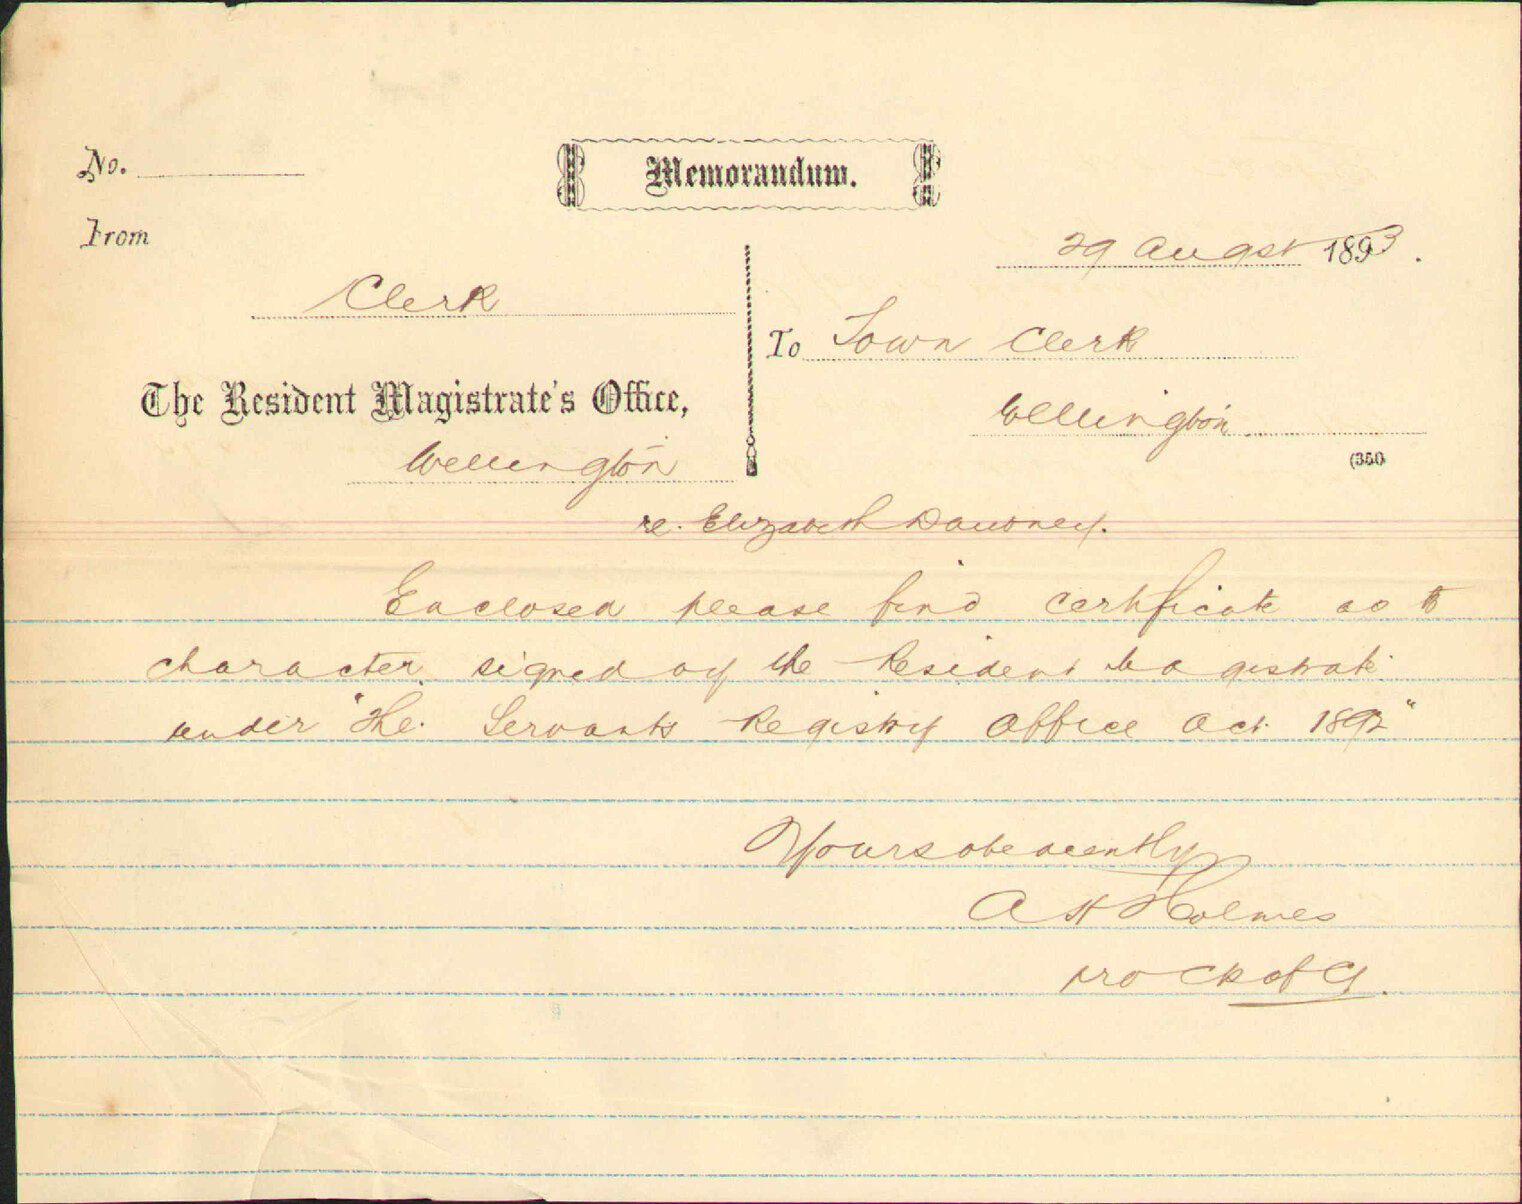 Memorandum.
No.
From
29 Augst 1893.
Clerk
To Town Clerk
The Resident Magistrate's Office,
Wellington
Wellington
(350
re. Elizabeth Dawney.
Enclosed please find certificate as to
character signed by the Resident Magistrate
under "The Servants Registry Office Act 1892"
Yours obediently
A H Holmes
pro Ck of Ct.